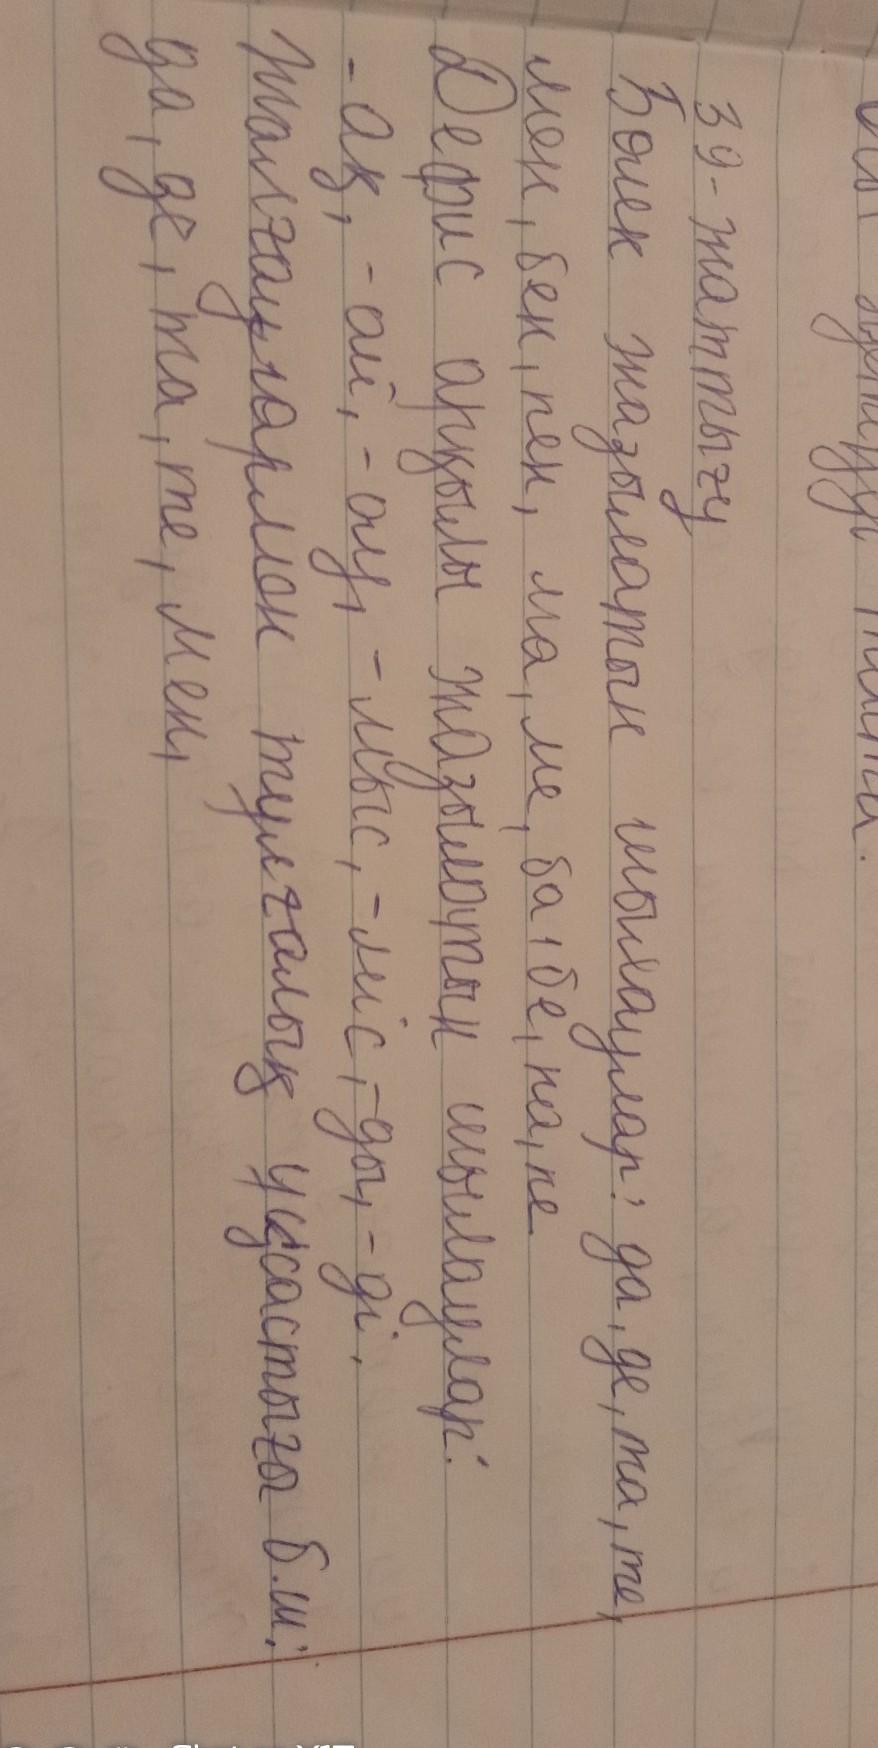 тілта.
39-жаттығу
Бөлек жазылатын шылаулар: да, де, та, те,
мен, бен, пен, ма, ме, ба, бе, па, пе.
Дефис арқылы жазылатын шылаулар:
-ақ, -ай, -ау, -мыс, -міс, -ды, -ді.
Жалғаулармен тұлғалық ұқсастығы б.ш:
да, де, та, те, мен,